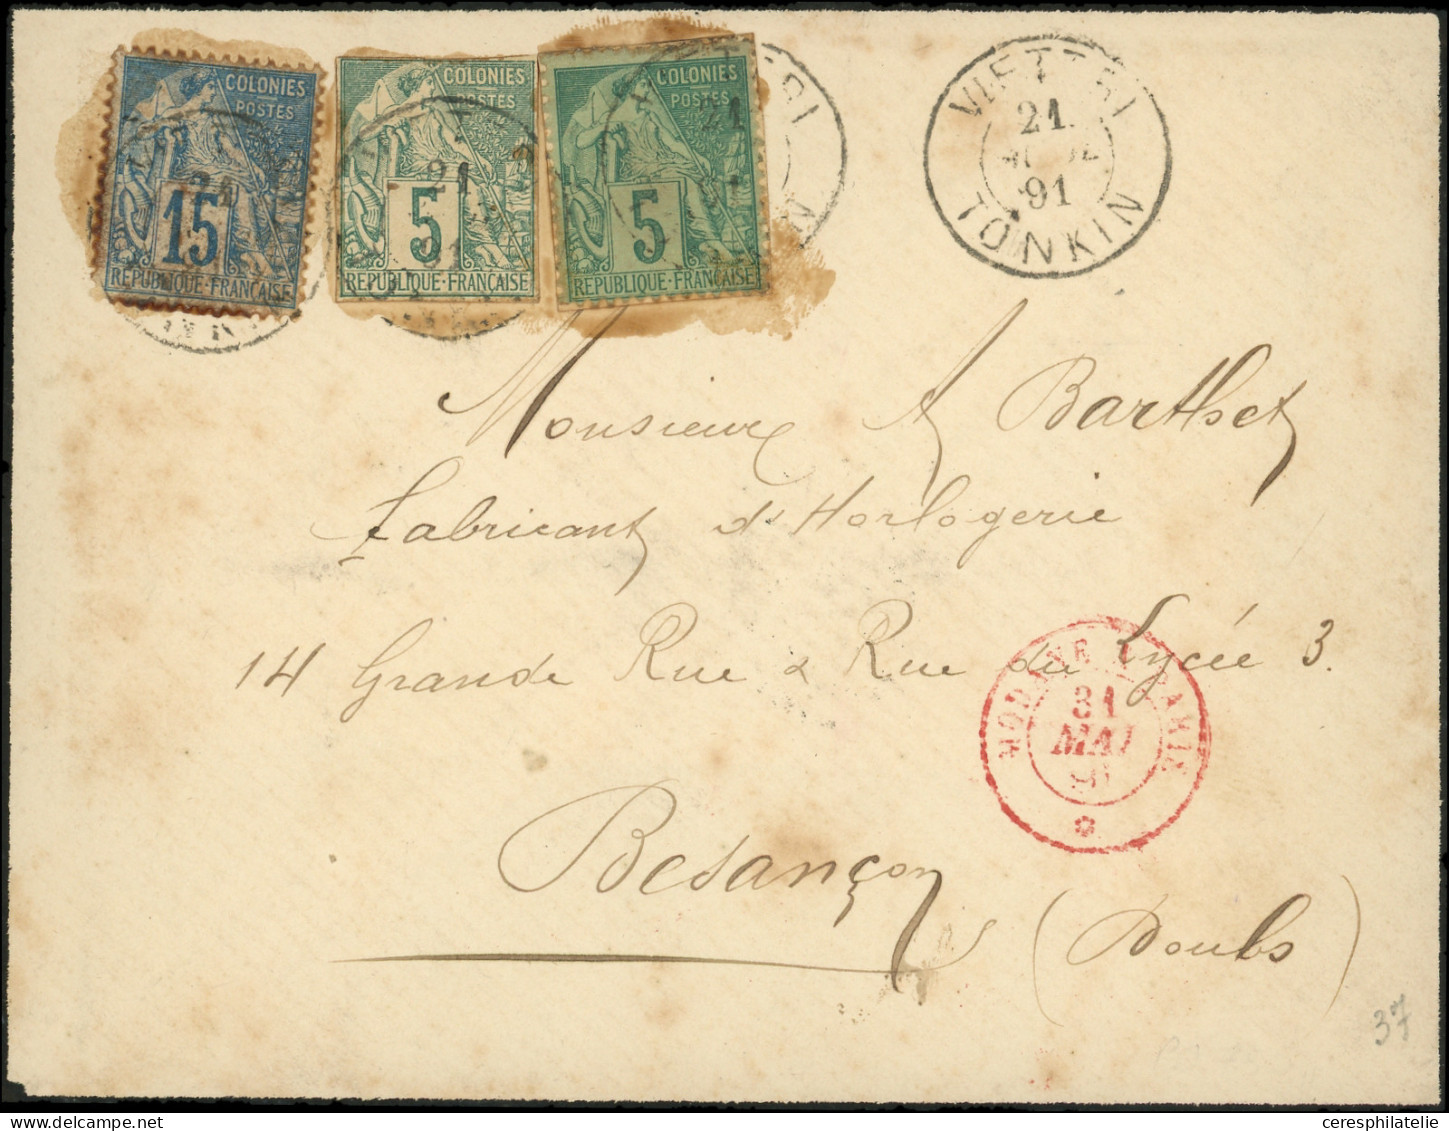 COLONIES
POSTES
15
REPUBLIQUE-FRANÇAISE
COLONIES
POSTES
5
REPUBLIQUE-FRANÇAISE
COLONIES
POSTES
5
REPUBLIQUE-FRANÇAISE
21
91
21
VIETTRI
21
91
TONKIN
Monsieur A Barthet
Fabricant d'Horlogerie
14 Grande Rue & Rue du Lycée 3.
MODANE A PARIS
31
MAI
Besançon
(Doubs)
37
ceresphilatelie.com